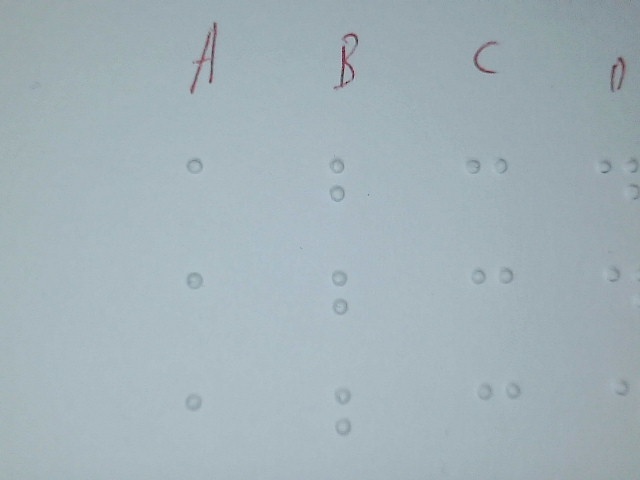 A B C D
⠁ ⠃ ⠉ ⠙
⠁ ⠃ ⠉ ⠙
⠁ ⠃ ⠉